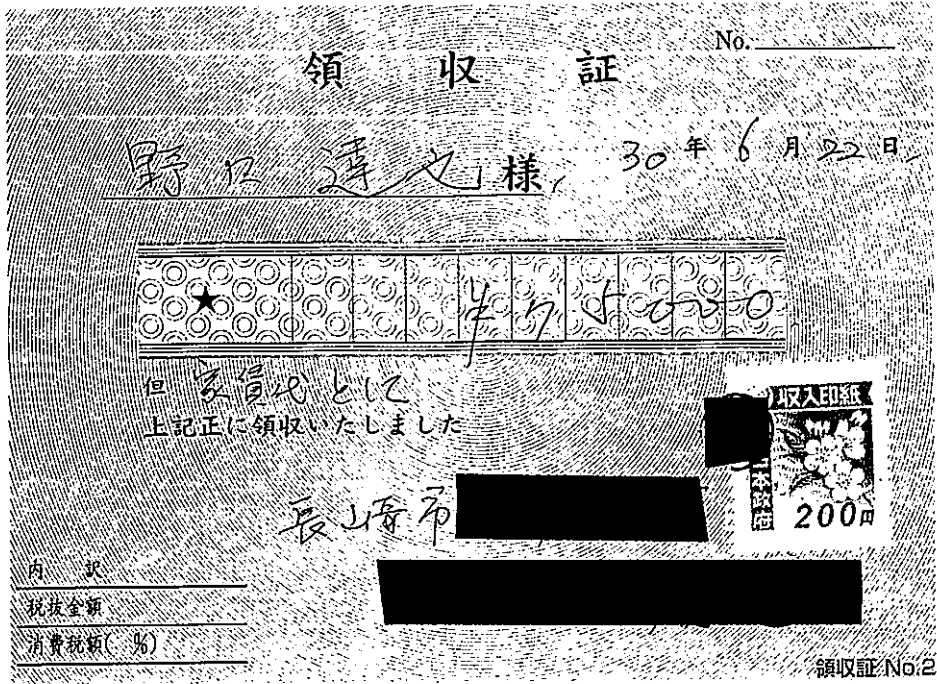 No.
領収証
野口 達也 様
30年6月22日
★ ¥75000
但 家賃代として
上記正に領収いたしました
収入印紙
200円
長崎市
内 訳
税抜金額
消費税額( %)
領収証 No.2